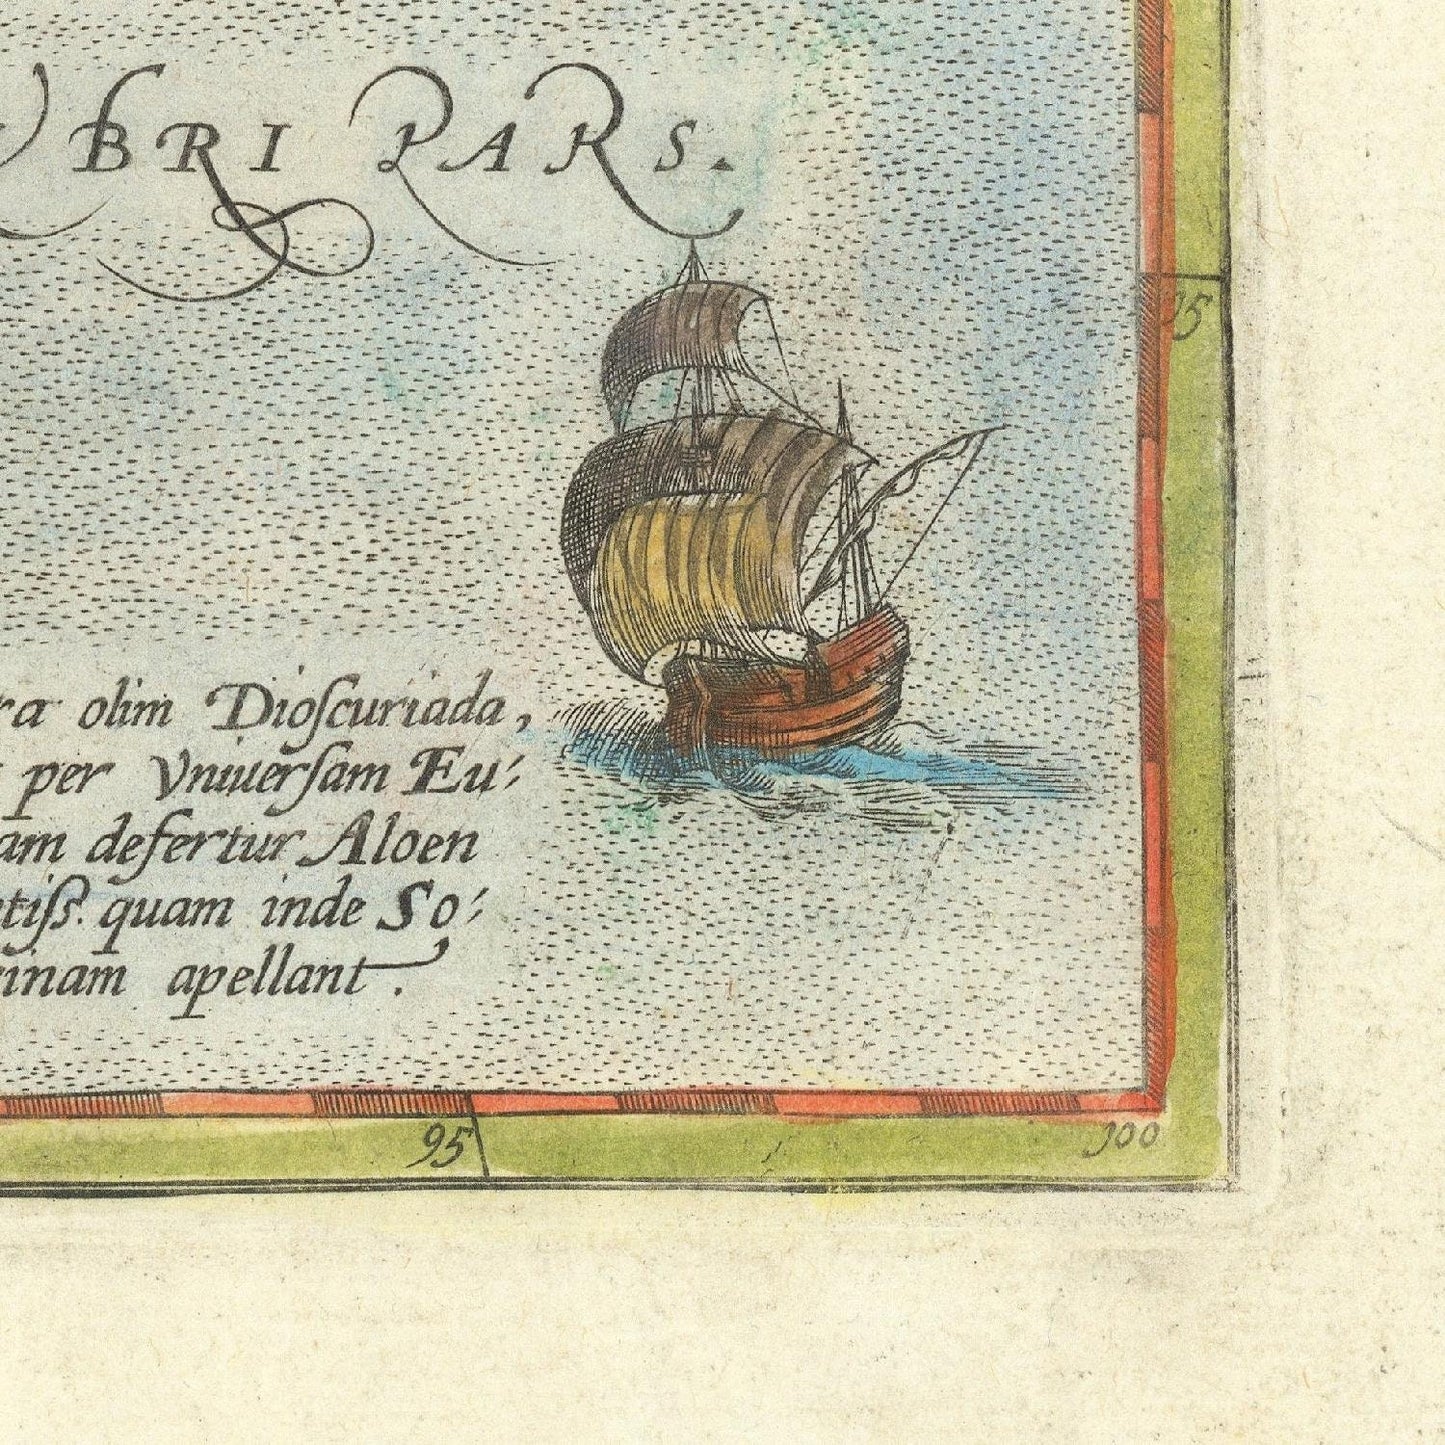 BRI PARS.
95
olim Dioſcuriada,
per Vniuerſam Eu-
defertur Aloen
quam inde So-
apellant.
95
100